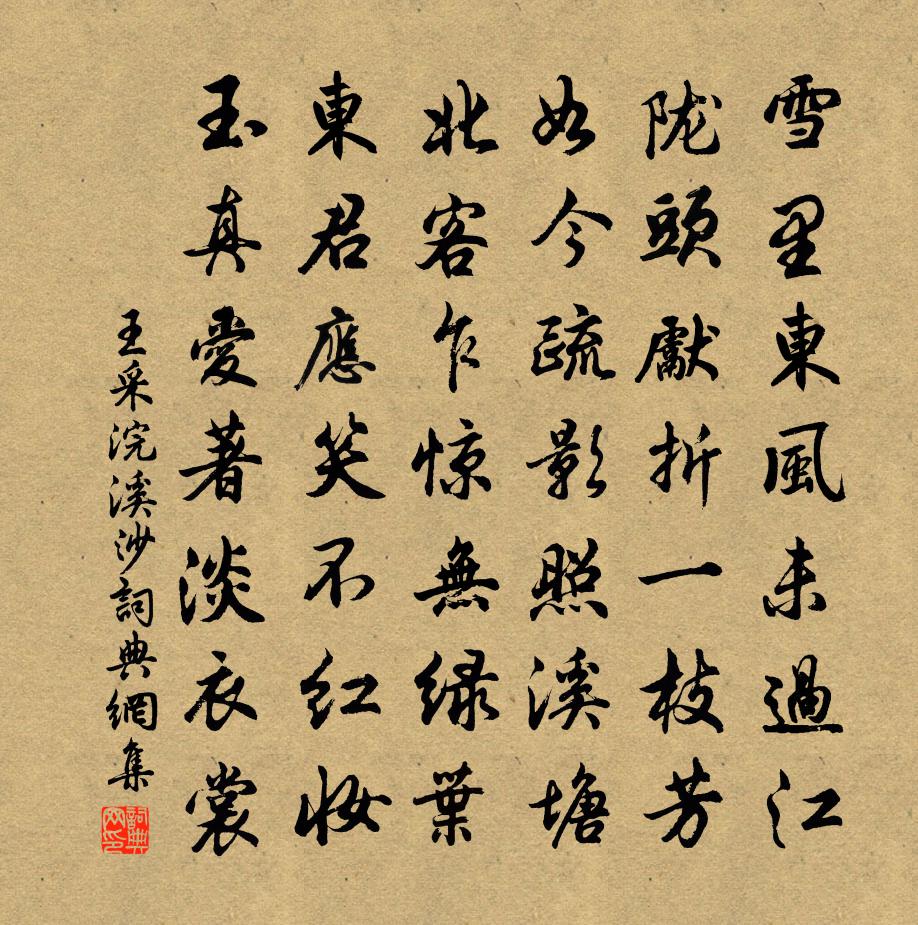 雪里東風未過江
陇頭獻折一枝芳
如今疏影照溪塘
北客乍惊無緑葉
東君應笑不紅妝
玉真愛著淡衣裳
王采浣溪沙詞典網集
詞典网印